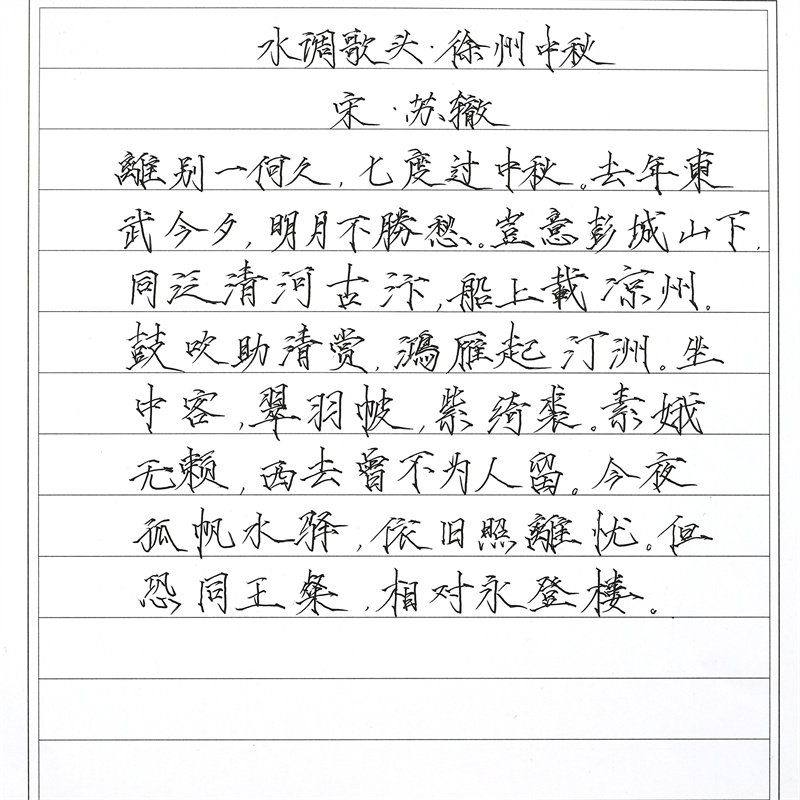 水调歌头·徐州中秋
宋·苏辙
離别一何久,七度过中秋。去年東
武今夕,明月不勝愁。豈意彭城山下,
同泛清河古汴,船上載凉州。
鼓吹助清赏,鴻雁起汀洲。坐
中客,翠羽帔,紫绮裘。素娥
无赖,西去曾不为人留。今夜
孤帆水驿,依旧照離忧。但
恐同王粲,相对永登楼。